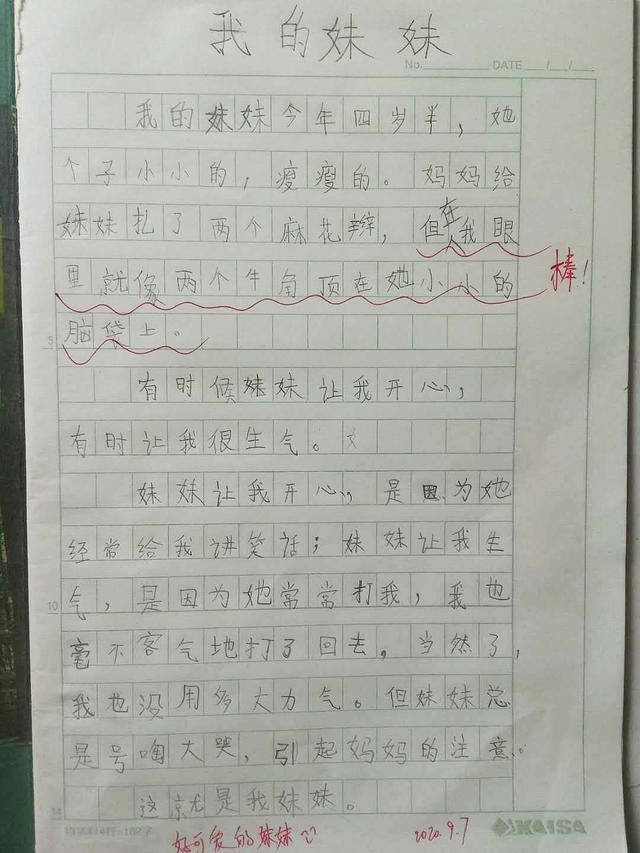 我的妹妹
No. DATE / /
我的妹妹今年四岁半，她
个子小小的，瘦瘦的。妈妈给
妹妹扎了两个麻花辫，但在我眼
里就像两个牛角顶在她小小的
棒！
脑袋上。
5
有时候妹妹让我开心，
有时让我很生气。
妹妹让我开心，是因为她
经常给我讲笑话；妹妹让我生
气，是因为她常常打我，我也
10
毫不客气地打了回去，当然了，
我也没用多大力气。但妹妹总
是号啕大哭，引起妈妈的注意。
这就是我妹妹。
14
好可爱的妹妹
2020.9.7
KAISA